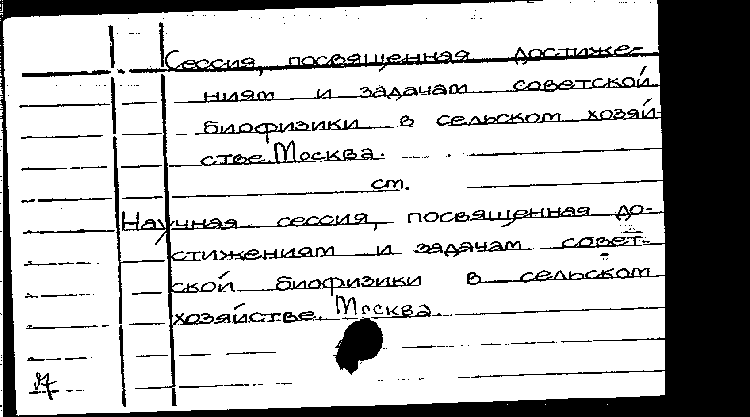 Сессия, посвященная достиже-
ниям и задачам советской
биофизики в сельском хозяй-
стве. Москва.
см.
Научная сессия, посвященная до-
стижениям и задачам совет-
ской биофизики в сельском
хозяйстве. Москва.